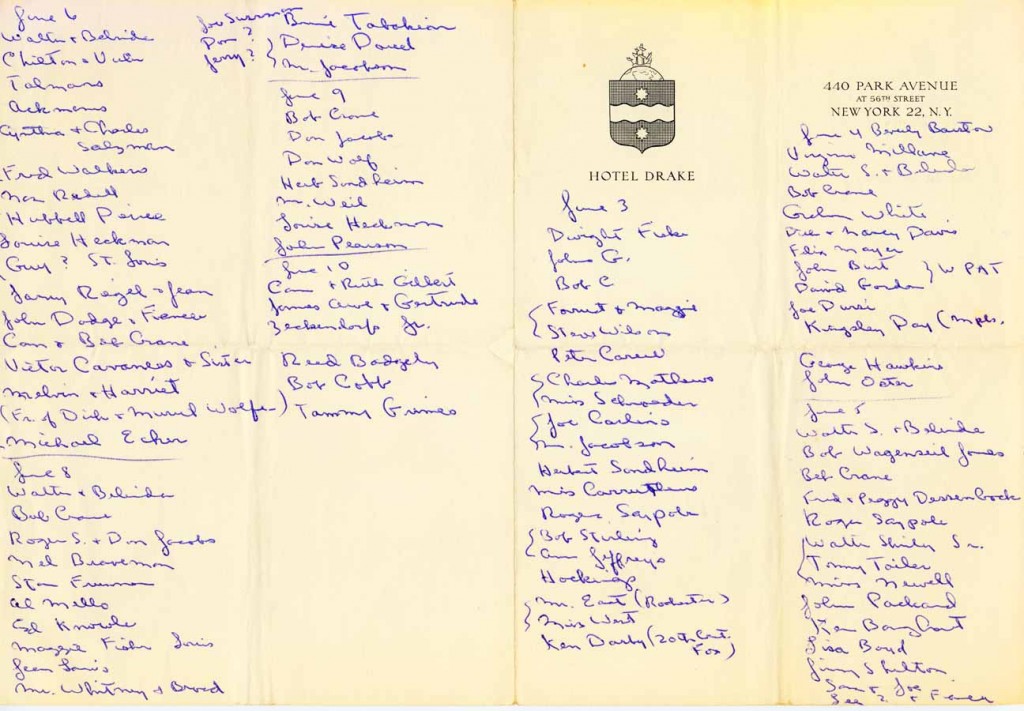 June 6
Walter & Belinda
Chilton &
Talmans
Ackmans
Cynthia & Charles
Salzman
Fred Walkers
Hubbell Pierce
Louise Heckman
Guy ? St. Louis
Larry & Jean
John Dodge &
Cam & Bob Crane
Victor & Sister
Melvin & Harriet
(Fr. of Dick & Muriel Wolfe)
Michael Ecker
June 8
Walter & Belinda
Bob Crane
Roger S. & Don Jacobs
Mel Braveman
Stan Freeman
Al Mello
Ed Knowle
Maggie Fisher Louis
Jean Louis
Mr. Whitney & Broad
Joe
Don ?
Jerry ?
Denise
Mr. Jacobson
June 9
Bob Crane
Don Jacobs
Don Wolf
Herb Sondheim
Mr. Weil
Louise Heckman
John Pearson
June 10
Cam & Ruth Gilbert
James & Gertrude
Zeckendorfs Jr.
Reed Badgely
Bob Cobb
Tammy Grimes
HOTEL DRAKE
June 3
Dwight Fiske
John G.
Bob C
Forrest & Maggie
Steve Wilson
Peter
Charles Mathews
Miss Schroeder
Joe Carlins
Mr. Jacobson
Herbert Sondheim
Miss Carruthers
Roger Saypole
Bob Sterling
Ann Jeffreys
Hockings
Mr. East (Rochester)
Miss West
Ken Darby (20th Cent.
Fox)
440 PARK AVENUE
AT 56TH STREET
NEW YORK 22, N.Y.
June 4 Beverly
Virginia Millane
Walter S. & Belinda
Bob Crane
Graham White
& Nancy Davis
Felix Mayer
John Burt
David Gordon
WPAT
Joe
Kingsley Day (Mpls.
George Hawkins
John
June 5
Walter S. & Belinda
Bob Wagenseil Jones
Bob Crane
Fred & Peggy
Roger Saypole
Walter Shirley Sr.
Tommy Tailer
Miss Newell
John Packard
Ken
Lisa Boyd
Jimmy Shelton
Sam & Joe